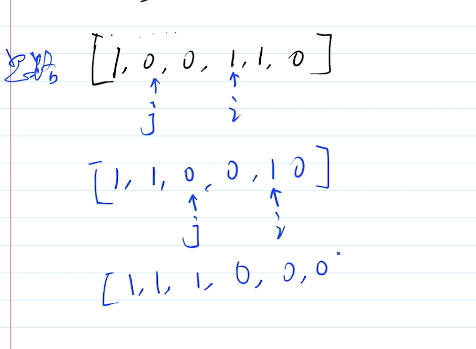 [1, 0, 0, 1, 1, 0]
j i
[1, 1, 0, 0, 1 0]
j i
[1, 1, 1, 0, 0, 0